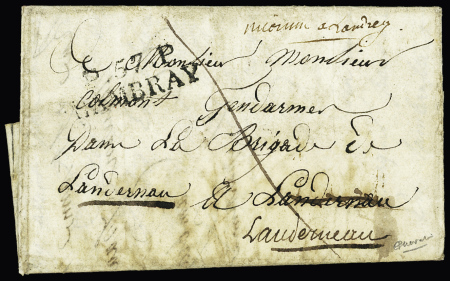 inconnu à Landrey
A Monsieur Monsieur
P.57.P
CAMBRAY
Colmont Gendarmer
Dans La Brigade de
Landernau A Landernau
Landerneau